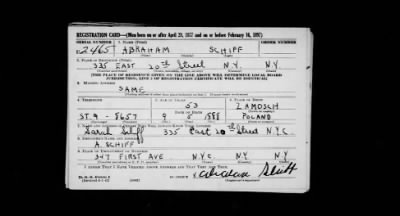 REGISTRATION CARD—(Men born on or after April 28, 1877 and on or before February 16, 1897)
SERIAL NUMBER 1. NAME (Print) ORDER NUMBER
U 2465 ABRAHAM SCHIFF
2. PLACE OF RESIDENCE (Print)
335 EAST 20th Street N.Y. N.Y.
[THE PLACE OF RESIDENCE GIVEN ON THE LINE ABOVE WILL DETERMINE LOCAL BOARD
JURISDICTION; LINE 2 OF REGISTRATION CERTIFICATE WILL BE IDENTICAL]
3. MAILING ADDRESS
SAME
4. TELEPHONE 5. AGE IN YEARS 6. PLACE OF BIRTH
53 ZAMOSCH
DATE OF BIRTH
ST. 9 - 8657 1888 POLAND
7. NAME AND ADDRESS OF PERSON WHO WILL ALWAYS KNOW YOUR ADDRESS
Sarah Schiff 335 East 20th Street N.Y.C.
8. EMPLOYER'S NAME AND ADDRESS
A. SCHIFF
9. PLACE OF EMPLOYMENT OR BUSINESS
347 FIRST AVE N.Y.C. N.Y. N.Y.
I AFFIRM THAT I HAVE VERIFIED ABOVE ANSWERS AND THAT THEY ARE TRUE.
Abraham Schiff